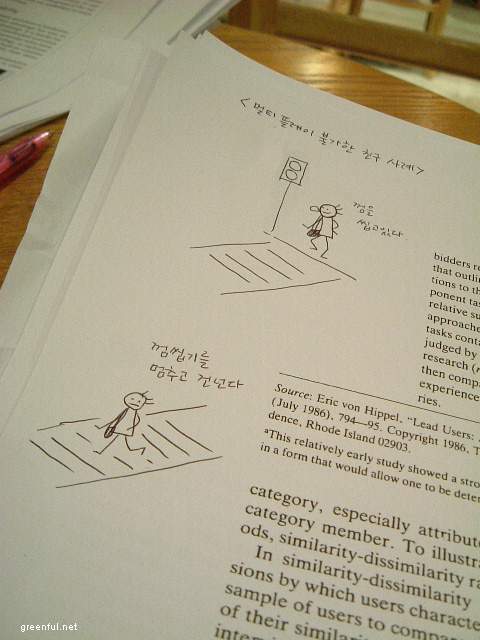 <멀티 플레이 불가한 친구 사례>
껌을
씹고있다
껌씹기를
멈추고 건넌다
bidders re
that outli
tions to th
ponent ta
relative su
approache
tasks conta
judged by
research (r
then compa
experience
ries.
Source: Eric von Hippel, "Lead Users:
(July 1986), 794—95. Copyright 1986, T
dence, Rhode Island 02903.
ᵃThis relatively early study showed a stro
in a form that would allow one to be deter
category, especially attribut
category member. To illustra
ods, similarity-dissimilarity ra
In similarity-dissimilarity
sions by which users characte
sample of users to compa
of their similari
greenful.net